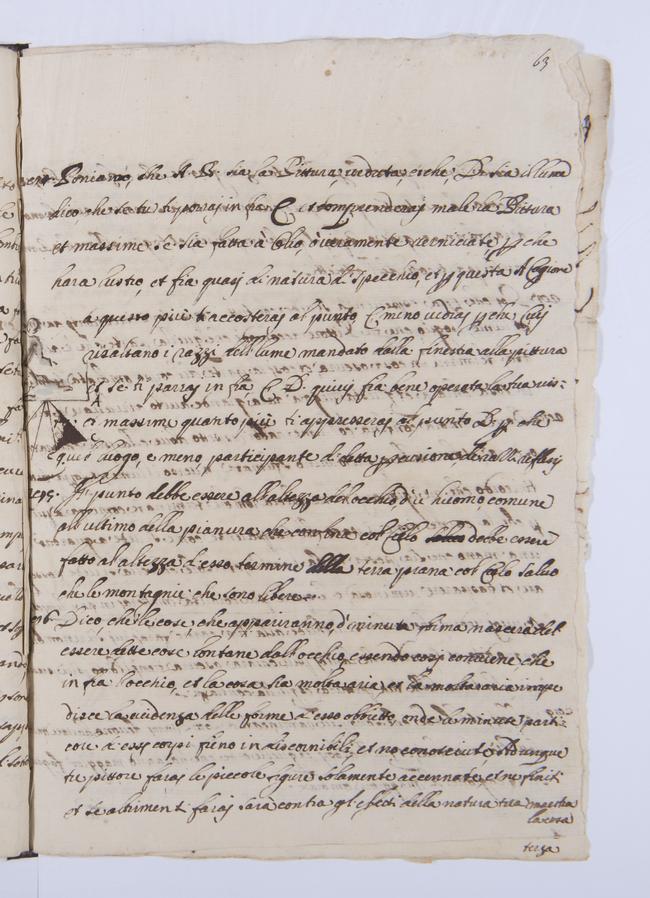 63
Poniamo, che A. B. sia la Pittura, veduta, e che, D. sia il lume
dico che se tu ti porraj in fra C. et comprenderaj male la Pittura
et massime se sia fatta à olio, ò veramente verniciata p che
hara lustro, et fia quasj di natura di specchio, et p questa Cagione
a questo più ti accosteraj al punto, C. meno vedraj p che quj
risaltano i razzi dell lume mandato dalla finestra alla pittura
et se ti parraj in fra E. D. quivj fia bene operata la tua vis=
ta massime quanto più ti appresseraj al punto D. p che
quel luogo, e meno, participante di detta percusione, de razzi reflesij
Il punto debbe essere all'altezza del occhio di u huomo comune
all ultimo della pianura che confina col Cielo debbe essere
fatto al altezza d'esso termine della terra piana col Cielo salvo
che le montagnie che sono libere.
Dico, che le cose, che appariranno, di minuta forma nascera del
essere dette cose lontane dall'occhio, essendo cosj conviene che
infra l'occhio, et la cosa sia molta aria, et la molta aria impe
disce la evidenza delle forme d'esso obbietto onde le minute parti
cole d'essj corpi fieno indiscernibili, et no conosciute Adunque
tu pittore faraj le piccole figure solamente accennate, et no finiti
et se altrimenti faraj sara contra gl'effecti della natura tua maestra
la cosa
terza